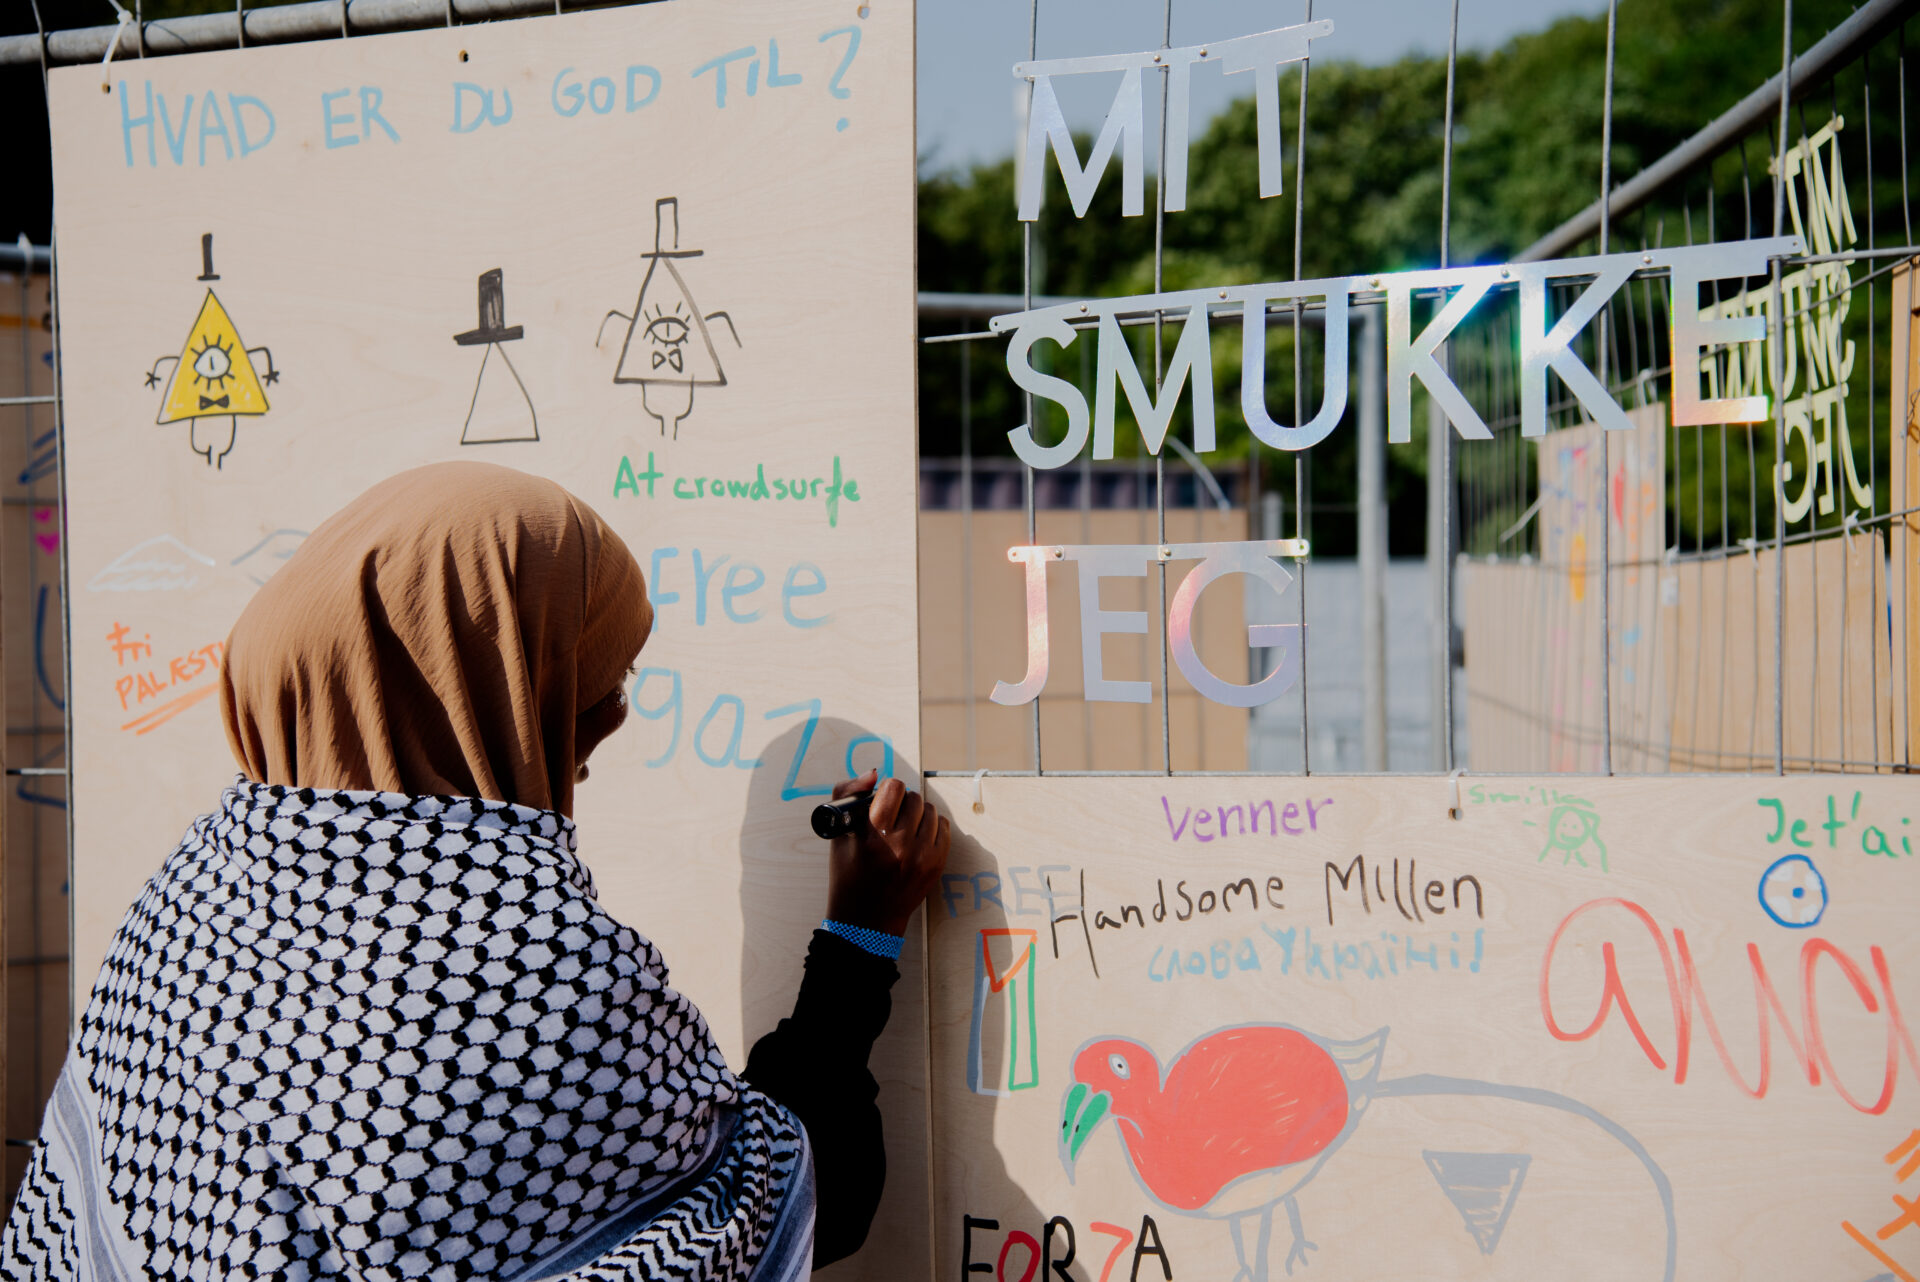 HVAD ER DU GOD TIL?
At crowdsurfe
Free
gaza
fri
PALÆST
MIT
SMUKKE
JEG
Venner
Smilla
Jet'ai
FREE
Handsome Millen
Слова Україні!
FORZA